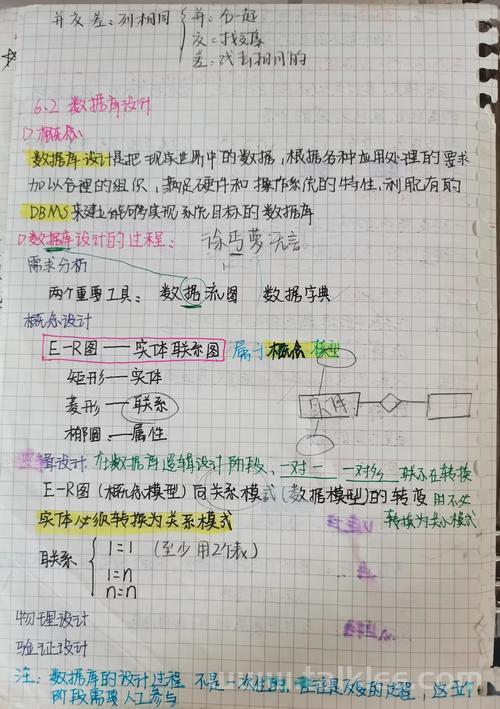 并交差：列相同
并：合一起
交：找交集
差：
6.2 数据库设计
概念
数据库设计是把现实世界中的数据，根据各种应用处理的需求
加以合理的组织，满足硬件和操作系统的特性，利用已有的
DBMS来建立能够实现系统目标的数据库
数据库设计的过程：
需求分析
两个重要工具：数据流图 数据字典
概念设计
E-R图——实体联系图 属于概念模型
矩形——实体
菱形——联系
椭圆——属性
辑设计 在数据库逻辑设计阶段、一对一 一对多 联系在转换
E-R图(概念模型)向关系模式(数据模型)的转变 时不必
实体必须转换为关系模式 转换为关系模式
联系
1=1 (至少用2个表)
1=n
n=n
物理设计
验证设计
注：数据库的设计过程 不是一次性的，往往是反复的过程，
阶段需要人工参与